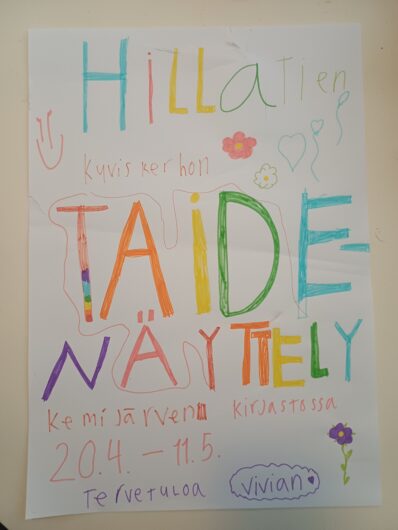 HiLLaTien
kyviskerhon
TAiDE
NÄYTTELY
kemijärven kirjastossa
20.4. – 11.5.
Tervetuloa vivian